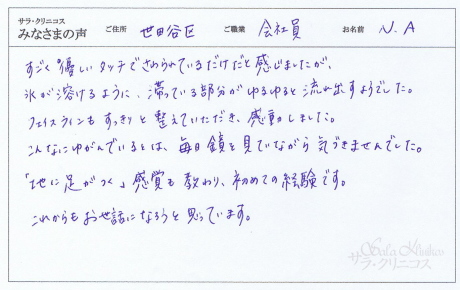 サラ・クリニコス
みなさまの声 ご住所 世田谷区 ご職業 会社員 お名前 N.A
すごく優しいタッチでさわられているだけだと感じましたが、
氷が溶けるように、滞っている部分がゆるゆると流れ出すようでした。
フェイスラインもすっきりと整えていただき、感動しました。
こんなにゆがんでいるとは、毎日鏡を見ていながら気づきませんでした。
「地に足がつく」感覚も教わり、初めての経験です。
これからもお世話になろうと思っています。
Sala Klinikos
サラ・クリニコス